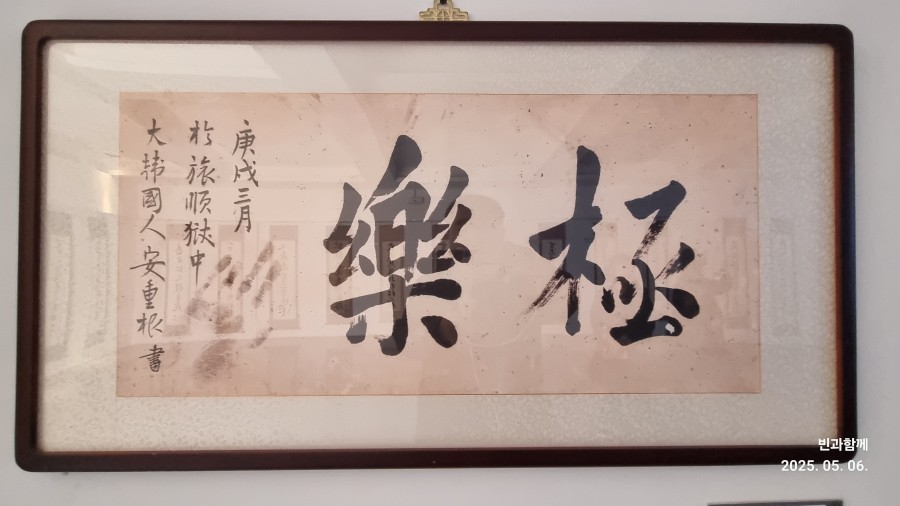 極樂
庚戌三月
於旅順獄中
大韓國人 安重根 書
빈과함께
2025. 05. 06.